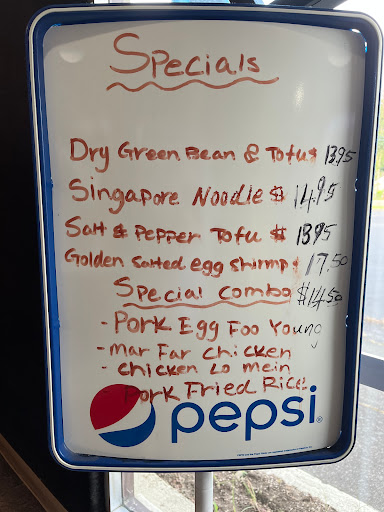 Specials
Dry Green Bean & Tofu $ 13.95
Singapore Noodle $ 14.95
Salt & Pepper Tofu $ 13.95
Golden Salted egg shrimp $ 17.50
Special Combo $14.50
- Pork Egg Foo Young
- Mar Far Chicken
- Chicken Lo mein
Pork Fried Rice
pepsi